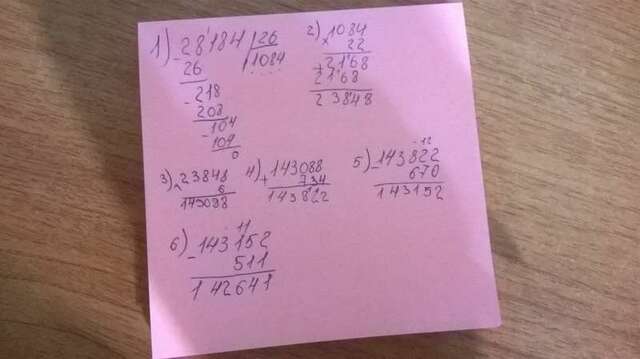 1) - 28'184 | 26
26 | 1084
- 218
208
- 104
104
0
2) × 1084
22
+ 2168
2168
23848
3) × 23848
6
143088
4) + 143088
734
143822
5) - 143822
670
143152
6) - 143152
511
142641